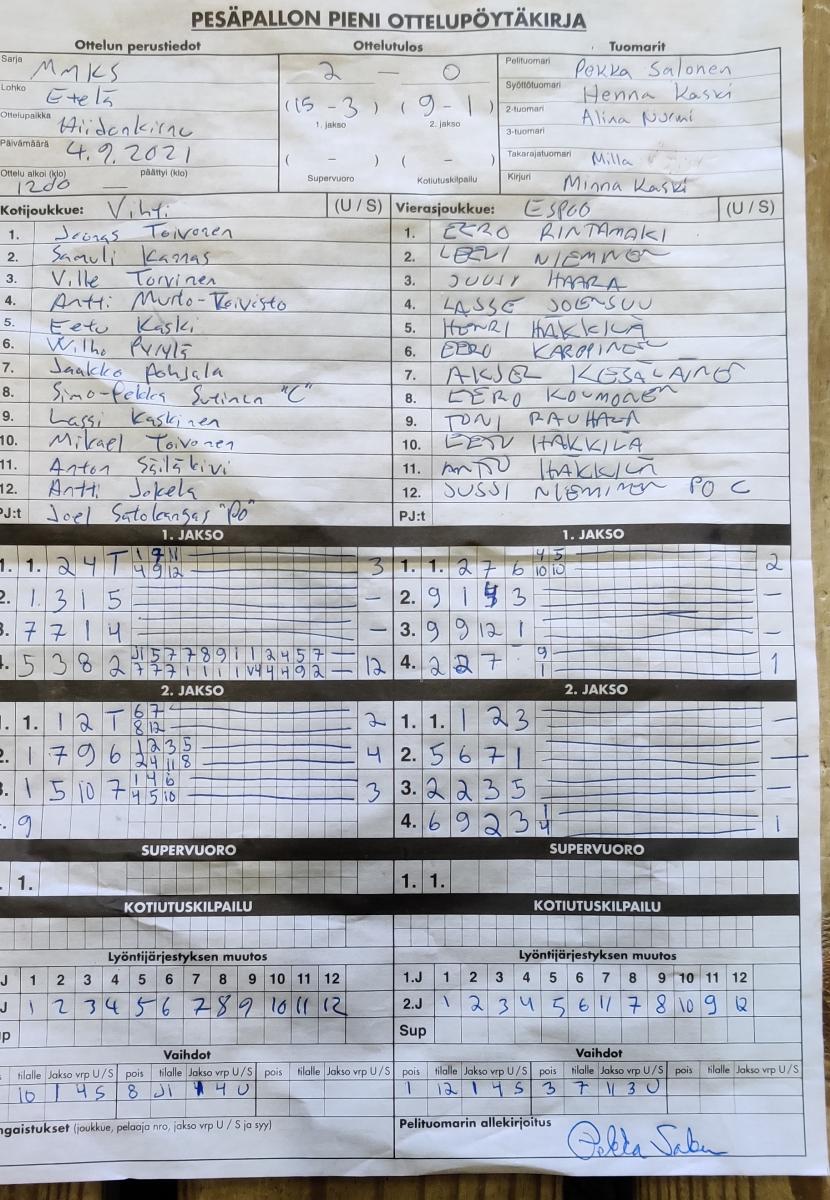 PESÄPALLON PIENI OTTELUPÖYTÄKIRJA
Ottelun perustiedot Ottelutulos Tuomarit
Sarja MMKS
Lohko Etelä
Ottelupaikka Hiidenkirnu
Päivämäärä 4.9.2021
Ottelu alkoi (klo) 1200 päättyi (klo) —
2 — 0
(15 - 3) (9 - 1)
1. jakso 2. jakso
( - ) ( - )
Supervuoro Kotiutuskilpailu
Pelituomari Pekka Salonen
Syöttötuomari Henna Kaski
2-tuomari Alina Nurmi
3-tuomari
Takarajatuomari Milla
Kirjuri Minna Kaski
Kotijoukkue: Vihti (U / S)
1. Joonas Toivonen
2. Samuli Kannas
3. Ville Torvinen
4. Antti Murto-Koivisto
5. Eetu Kaski
6. Wilho Pyrylä
7. Jaakko Pohjala
8. Simo-Pekka "C"
9. Lassi Kaskinen
10. Mikael Toivonen
11. Anton Säiläkivi
12. Antti Jokela
PJ:t Joel Satokangas "PO"
Vierasjoukkue: ESPOO (U / S)
1. EERO RINTAMAKI
2. LEEVI NIEMINEN
3. JUUSI HAARA
4. LASSE JOENSUU
5. HENRI HÄKKILÄ
6. EERO KAROPINEN
7. AKSEL KESÄLÄINEN
8. EERO KOUMONEN
9. TONI RAUHALA
10. EETU HÄKKILÄ
11. ANTTU HÄKKILÄ
12. JUSSI NIEMINEN PO C
PJ:t
1. JAKSO 1. JAKSO
1. 1. 2 4 T 1 7 11 3
4 9 12
2. 1 3 1 5 —
3. 7 7 1 4 —
4. 5 3 8 2 J1 5 7 7 8 9 1 1 2 4 5 7 12
7 7 7 1 1 1 1 4 4 9 2
1. 1. 2 7 6 4 5 2
10 10
2. 9 1 3 —
3. 9 9 12 1 —
4. 2 2 7 9 1
1
2. JAKSO 2. JAKSO
1. 1. 1 2 T 6 7 2
8 12
2. 1 7 9 6 1 2 3 5 4
2 4 11 8
3. 1 5 10 7 1 4 6 3
4 5 10
. 9
1. 1. 1 2 3 —
2. 5 6 7 1 —
3. 2 2 3 5 —
4. 6 9 2 3 1 1
4
SUPERVUORO SUPERVUORO
1. 1. 1.
KOTIUTUSKILPAILU KOTIUTUSKILPAILU
Lyöntijärjestyksen muutos Lyöntijärjestyksen muutos
J 1 2 3 4 5 6 7 8 9 10 11 12
J 1 2 3 4 5 6 7 8 9 10 11 12
p
1.J 1 2 3 4 5 6 7 8 9 10 11 12
2.J 1 2 3 4 5 6 11 7 8 10 9 12
Sup
Vaihdot Vaihdot
tilalle Jakso vrp U / S pois tilalle Jakso vrp U / S pois tilalle Jakso vrp U / S
10 1 4 S 8 J1 1 4 U
pois tilalle Jakso vrp U / S pois tilalle Jakso vrp U / S pois tilalle Jakso vrp U / S
1 12 1 4 S 3 7 11 3 U
ngaistukset (joukkue, pelaaja nro, jakso vrp U / S ja syy)
Pelituomarin allekirjoitus